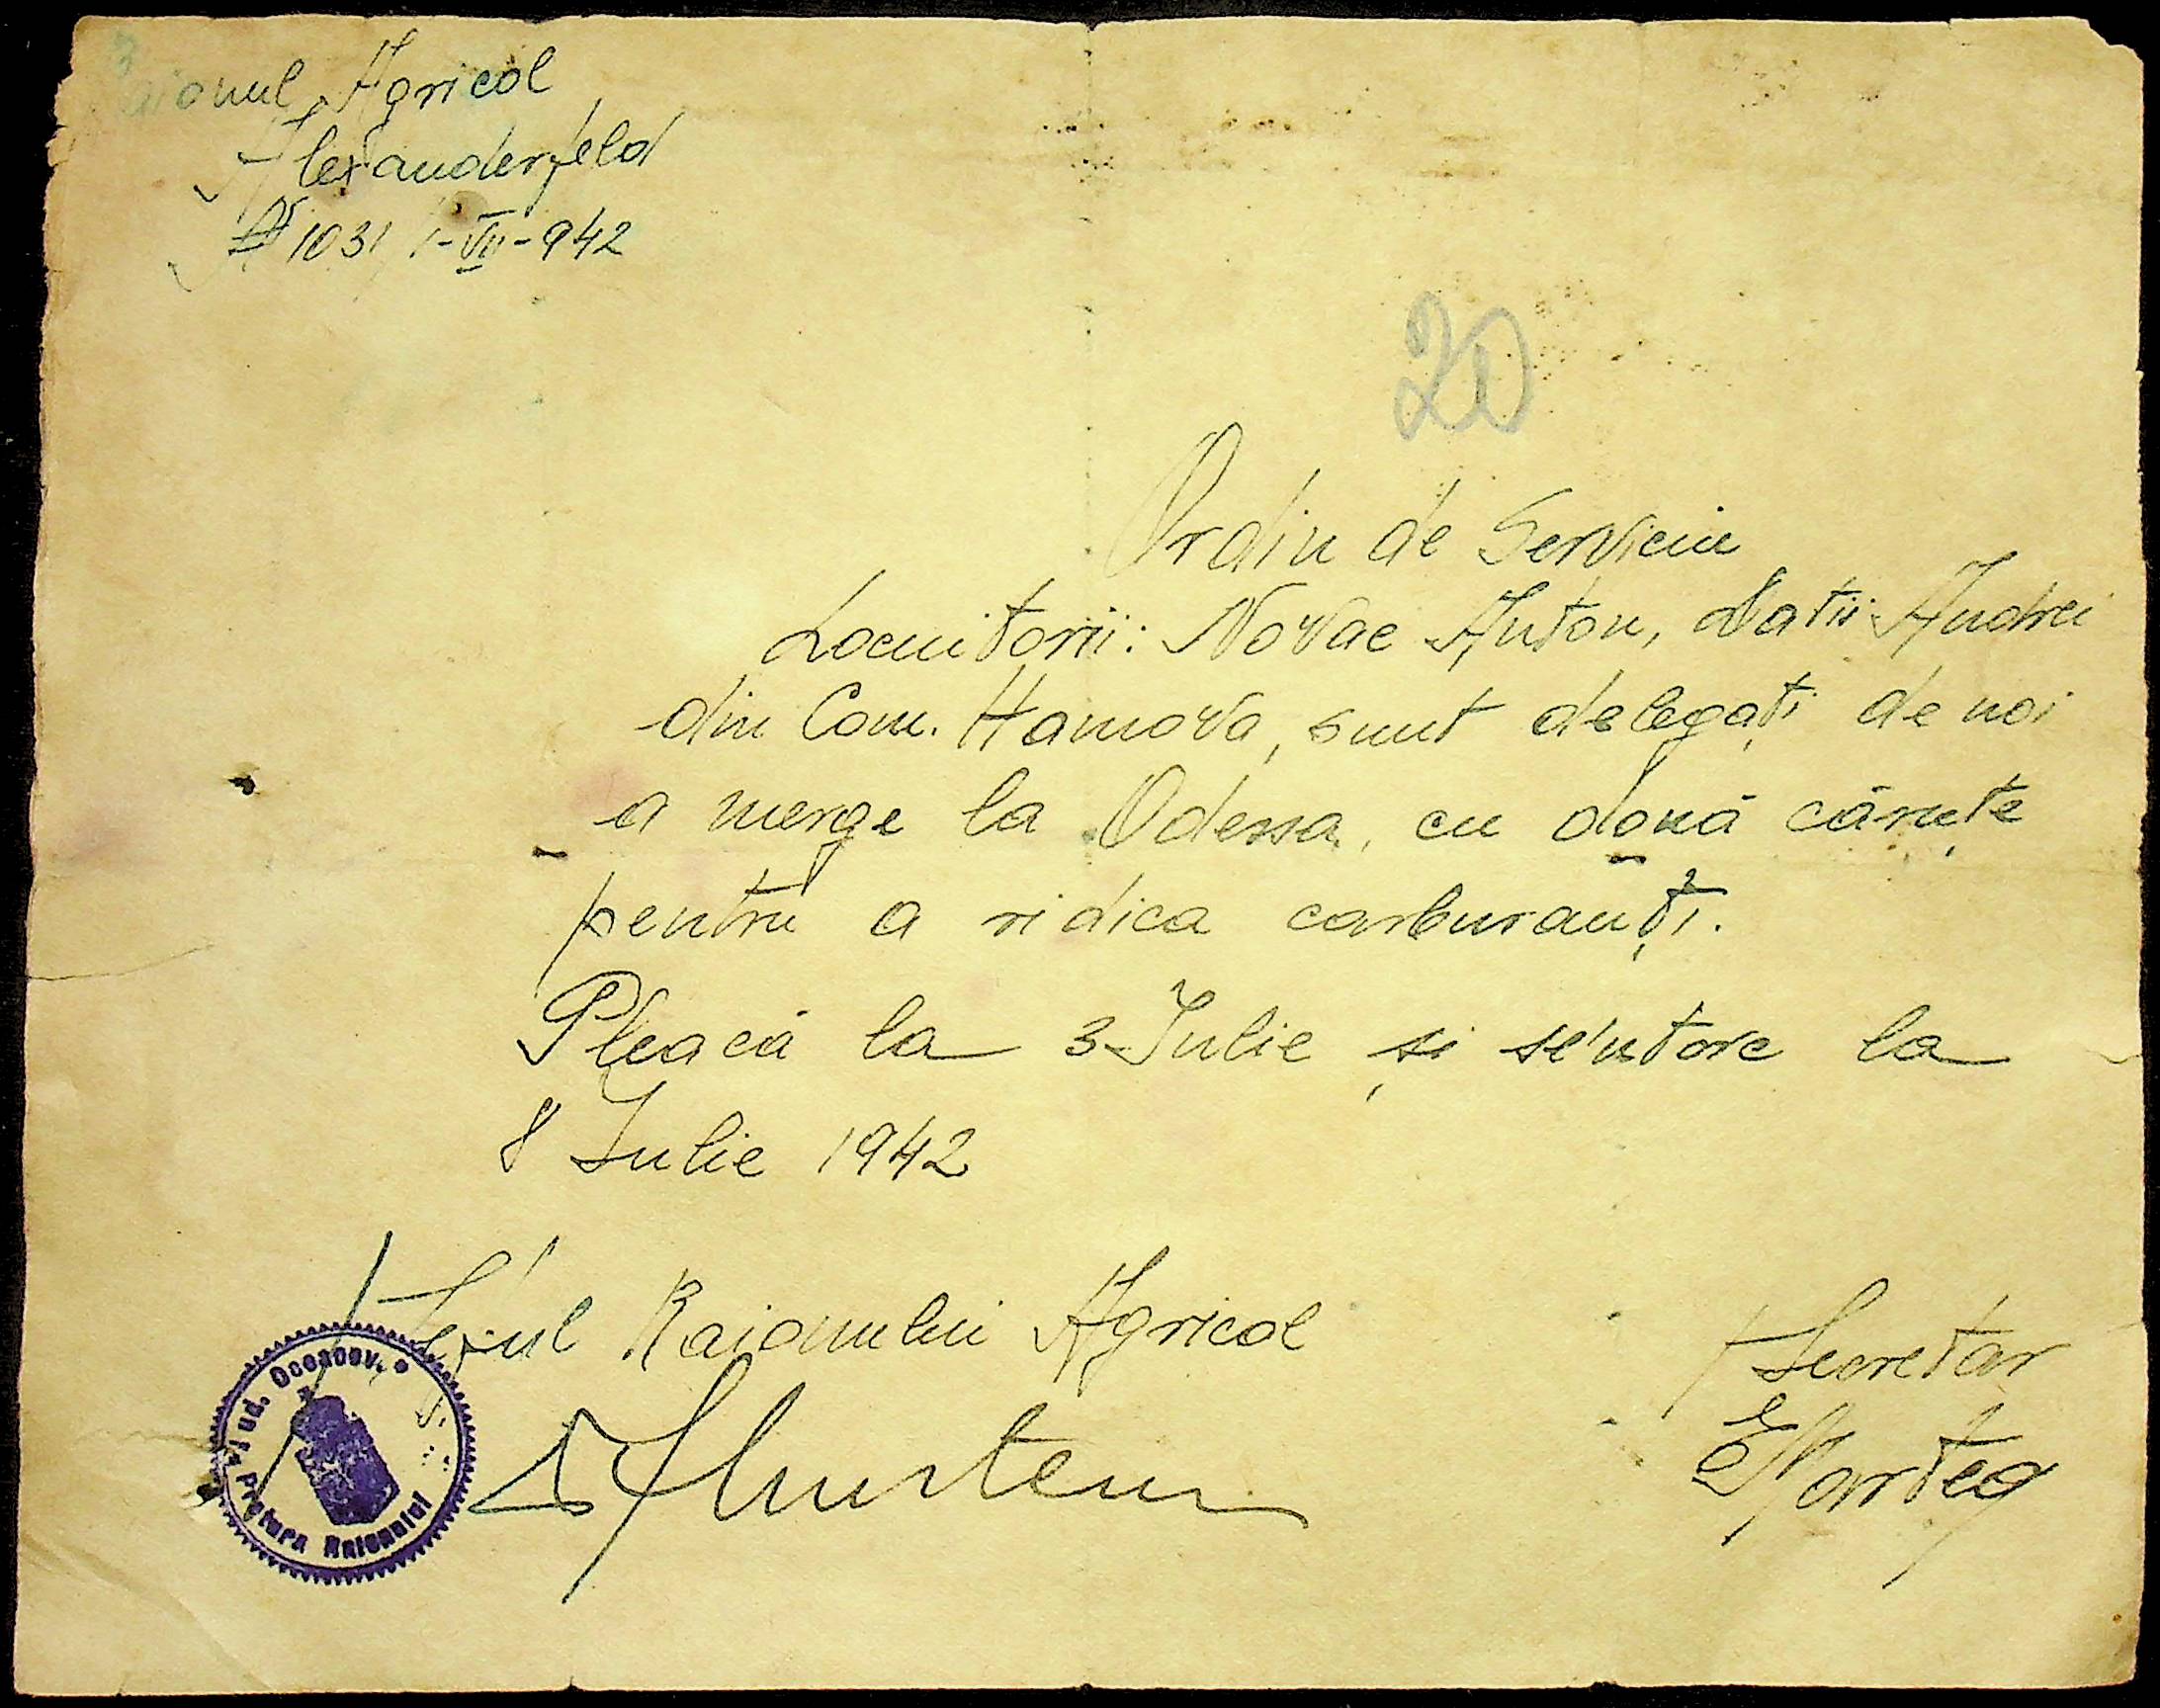 Raionul Agricol
Alexanderfeld
№ 1031, 1-VII-942
20
Ordin de Serviciu
Locuitorii: Novac Anton, Andrei
din Com. Hamova, sunt delegați de noi
a merge la Odessa, cu două căruțe
pentru a ridica carburanți.
Pleacă la 3 Iulie și se'ntorc la
8 Iulie 1942
Șeful Raionului Agricol
Secretar
Jud. Oceacov
Pretura Raionului